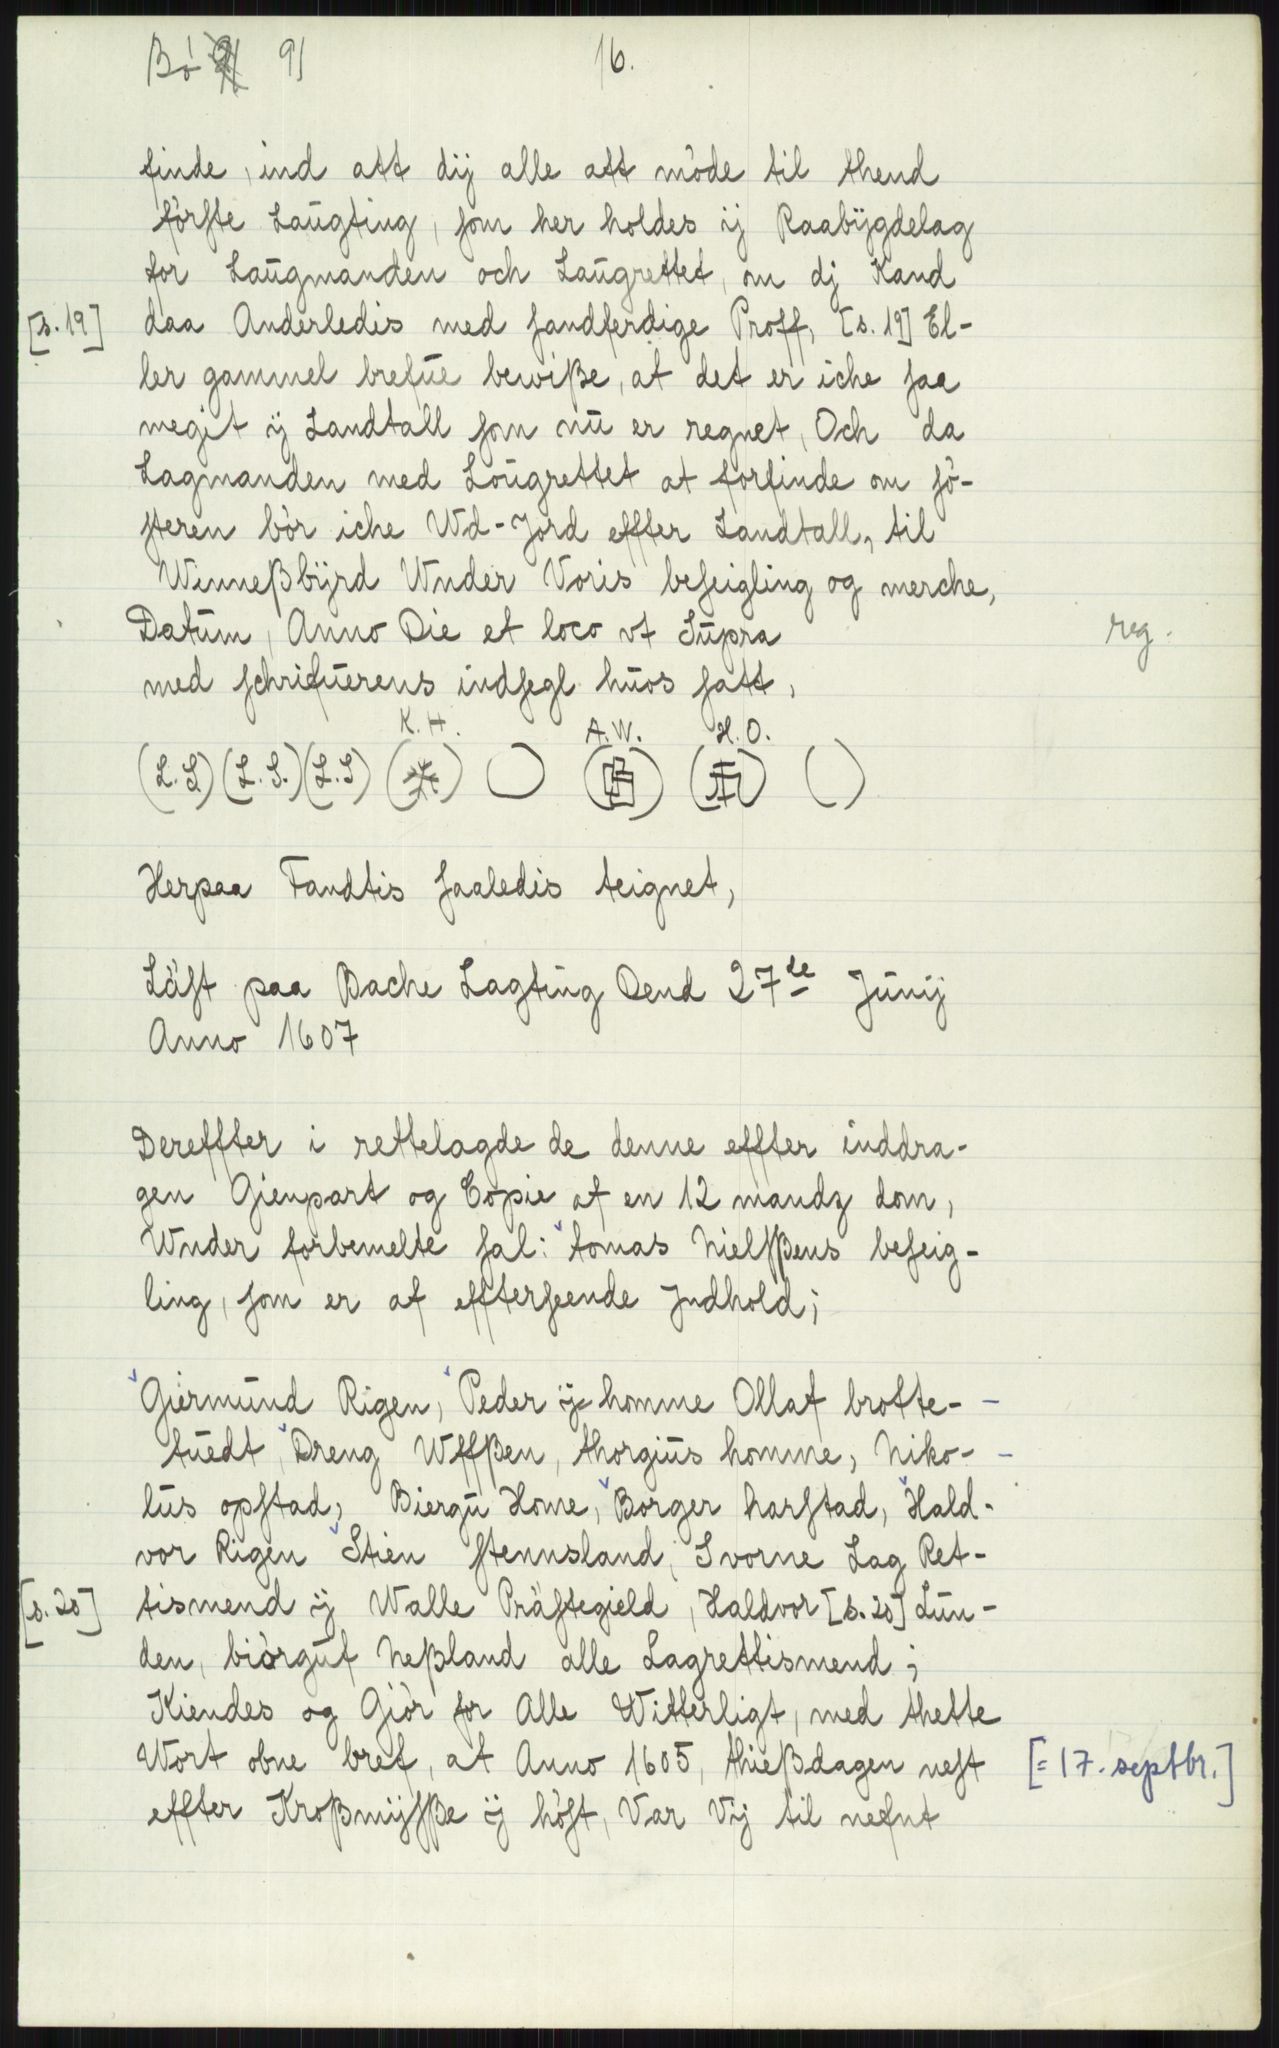 Bó 91 16.
finde, ind att dij alle att móde til thend
förste Laugting, som her holdes ij Raabÿgdelag
for Laugmanden och Laugrettet, om dj Kand
[s. 19] daa Anderledis med sandferdige Proff, [s. 19] El-
ler gammel brefue bewiße, at det er iche saa
megit ij Landtall som nu er regnet, Och da
Lagmanden med Lougrettet at forfinde om sö-
steren bör iche Wd-Jord effter Landtall, til
Winneßbÿrd Wnder Voris beseigling og merche,
Datum, Anno Die et loco vt Supra
reg.
med schrifuerens indsegl huos satt,
K. H. A. W. H. O.
(L. S) (L. S.) (L. S) ( ) ( ) ( ) ( ) ( )
Herpaa Fandtis saaledis teignet,
Läst paa Bache Lagting Dend 27de Junij
Anno 1607
Dereffter i rettelagde de denne effter inddra-
gen Gienpart og Copie af en 12 mandz dom,
Wnder forbemelte sal: tomas Nielsßens beseig-
ling, som er af efftersеende Jndhold;
Giermund Rigen, Peder ij homme Ollaf brotte-
tuedt, Dreng Wffßen, thorgius homme, Niko-
lus opstad, Biergu Home, Borger harstad, Hald-
vor Rigen Stien stennsland, Svorne Lag Ret-
[s. 20] tismend ij Walle Prästegield, Haldvor [s. 20] Lun-
den, biórguf Neßland alle Lagrettismend;
Kiendes og Giör for Alle Witterligt, med thette
Wort obne bref, at Anno 1605, thießdagen nest [= 17. septbr.]
effter Kroßmijsße ij höst, Var Vij til nefnt